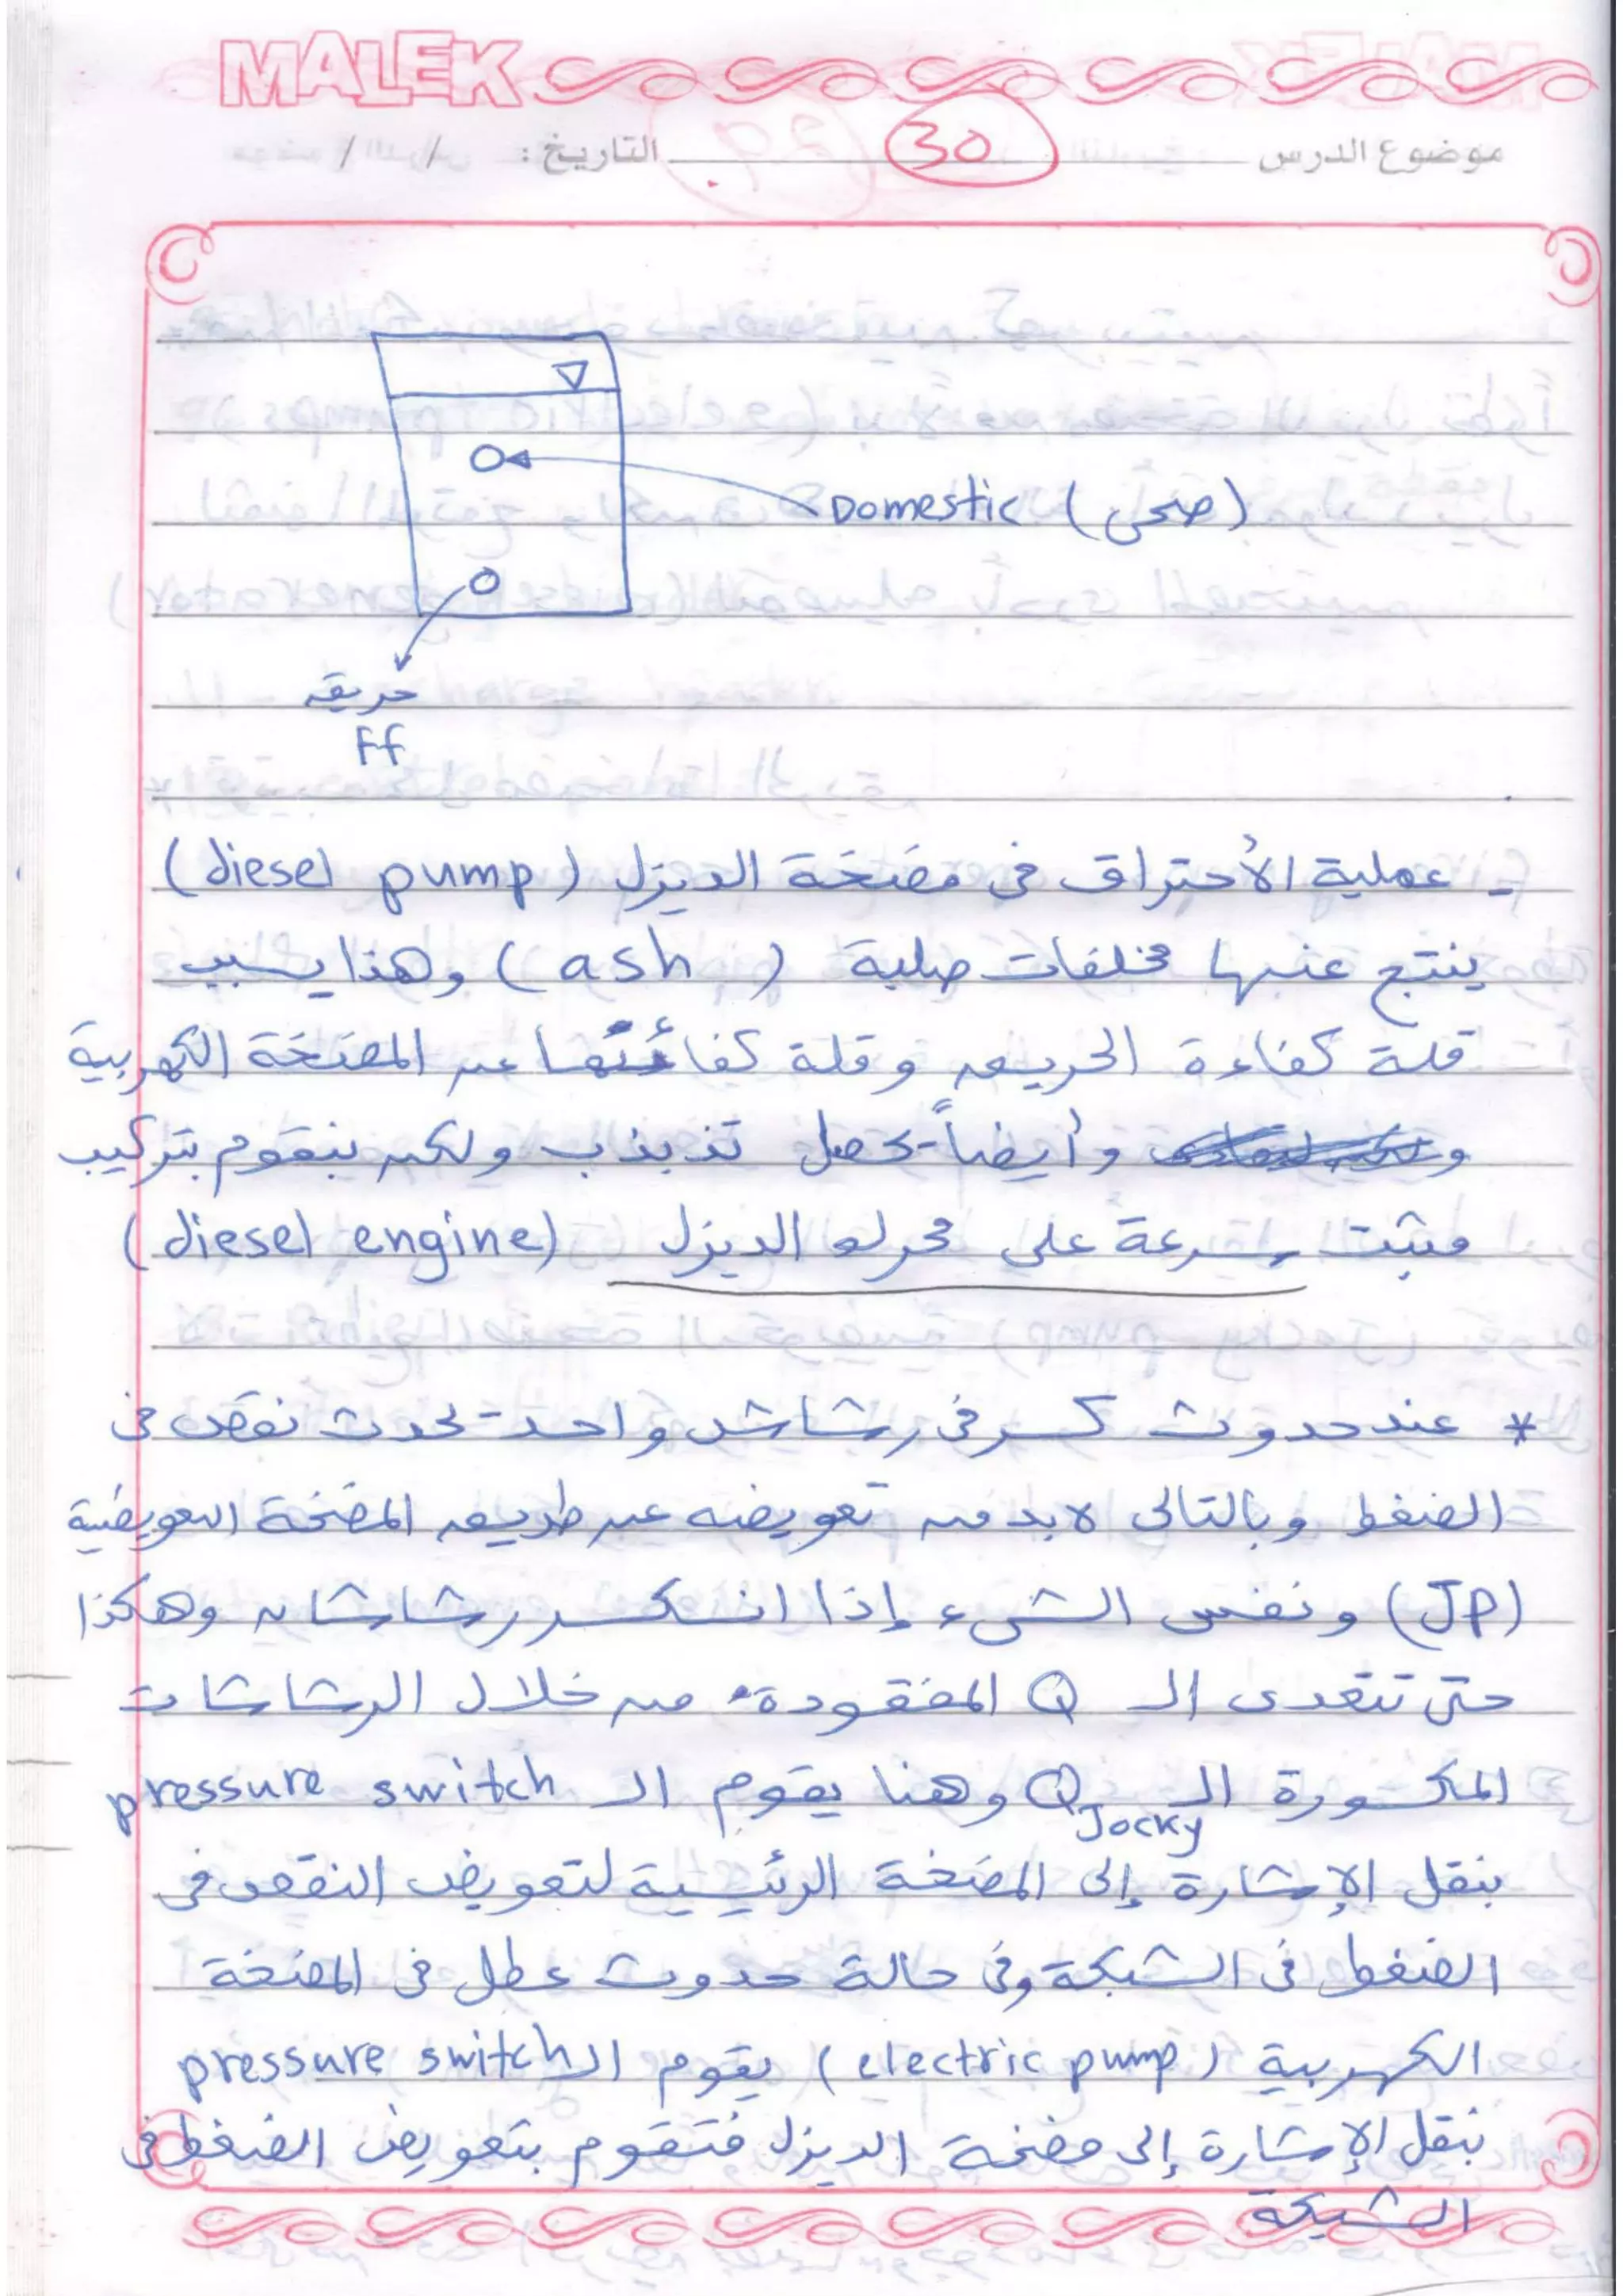 MALEK
موضوع الدرس 30 التاريخ : / /
Domestic (صحى)
حريق
FF
- عملية الأحتراق فى مضخة الديزل (diesel pump)
ينتج عنها مخلفات صلبة (ash) وهذا يسبب
قلة كفاءة الحريق وقلة كفائتها عن المضخة الكهربية
وأيضاً يحصل تذبذب ولكن بنقوم بتركيب
مثبت سرعة على محرك الديزل (diesel engine)
* عند حدوث كسر فى رشاش واحد يحدث نقص فى
الضغط وبالتالى لابد من تعويضه عن طريق المضخة التعويضية
(JP) ونفس الشىء إذا انكسر رشاشان وهكذا
حتى تتعدى الـ Q المفقودة من خلال الرشاشات
المكسورة الـ Q Jocky وهنا يقوم الـ pressure switch
بنقل الإشارة إلى المضخة الرئيسية لتعويض النقص فى
الضغط فى الشبكة وفى حالة حدوث عطل فى المضخة
الكهربية (electric pump) يقوم الـ pressure switch
بنقل الإشارة إلى مضخة الديزل فتقوم بتعويض الضغط فى
الشبكة